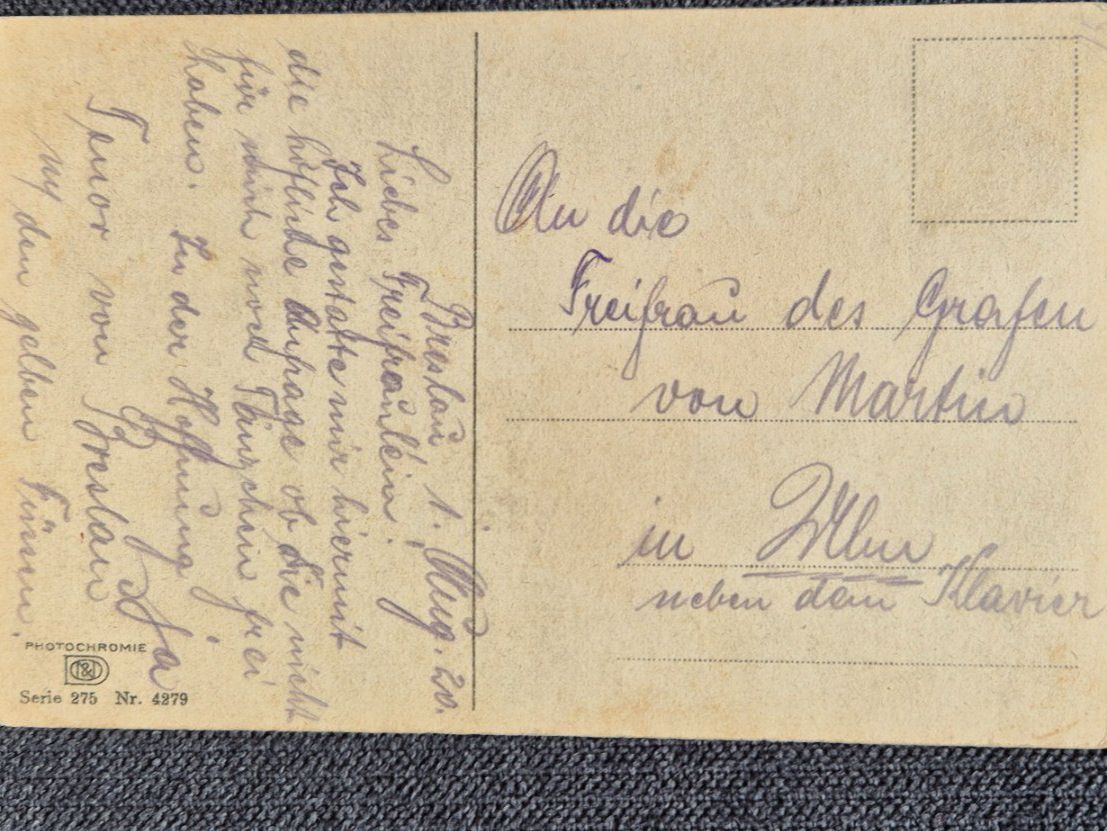 Breslau 1. Aug. 20.
Liebes Freifräulein!
Ich gestatte mir hiermit
die höfliche Anfrage ob Sie nicht
für mich noch Tänzchen frei
haben. In der Hoffnung
Tenor von Breslau
mit den gelben
An die
Freifrau des Grafen
von Martin
in
neben dem Klavier
PHOTOCHROMIE
Serie 275 Nr. 4279